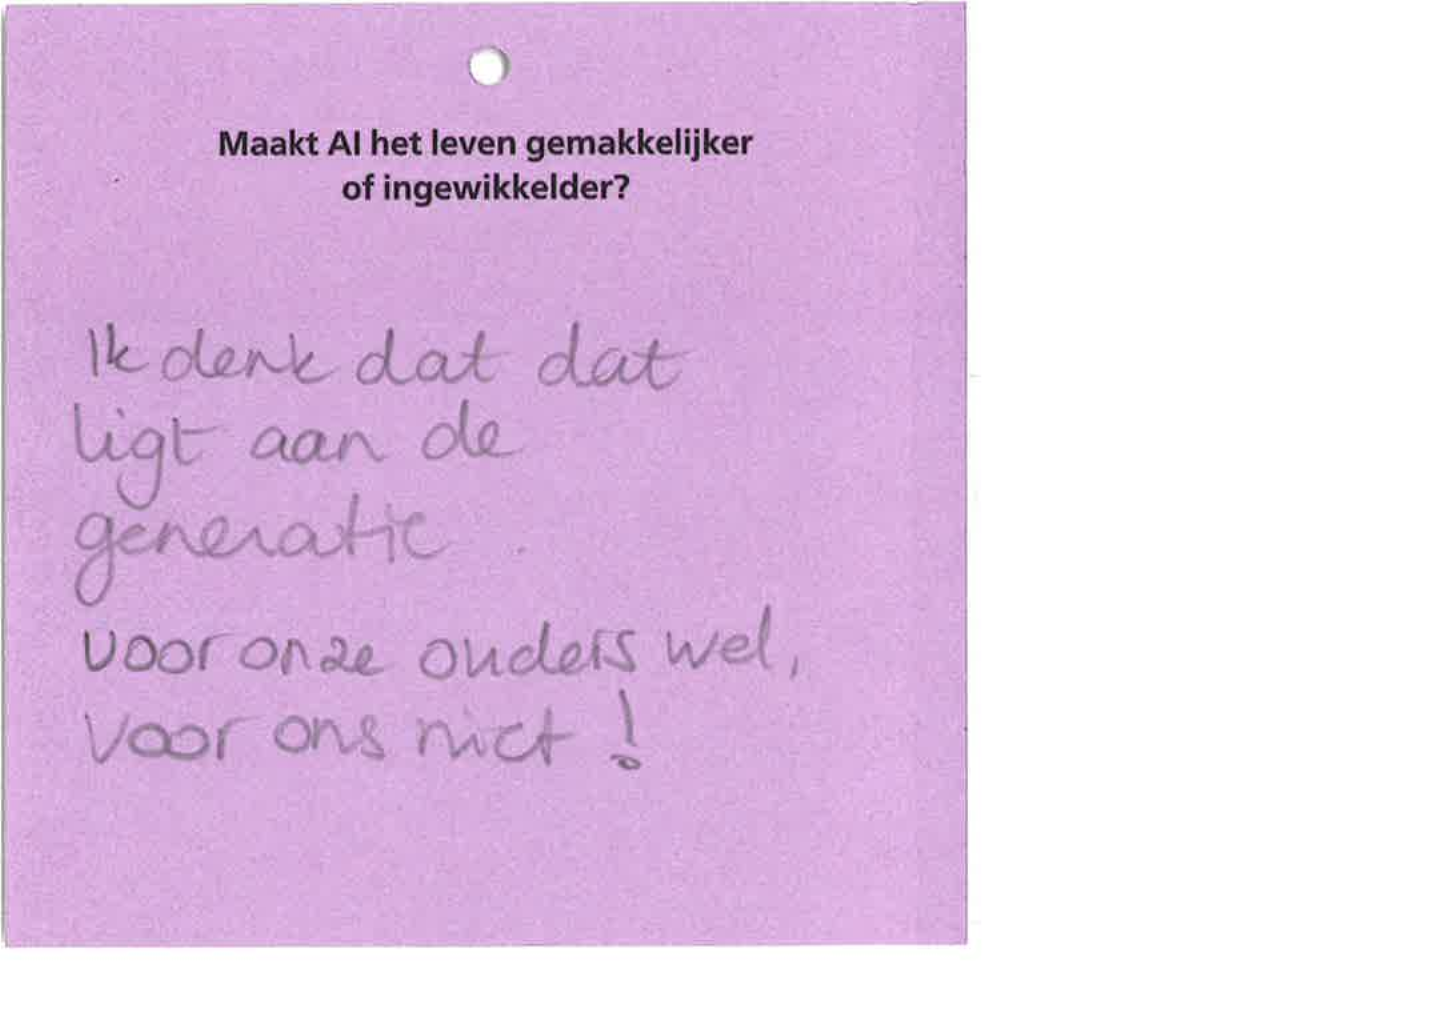 Maakt AI het leven gemakkelijker
of ingewikkelder?
Ik denk dat dat
ligt aan de
generatie
voor onze ouders wel,
voor ons niet!